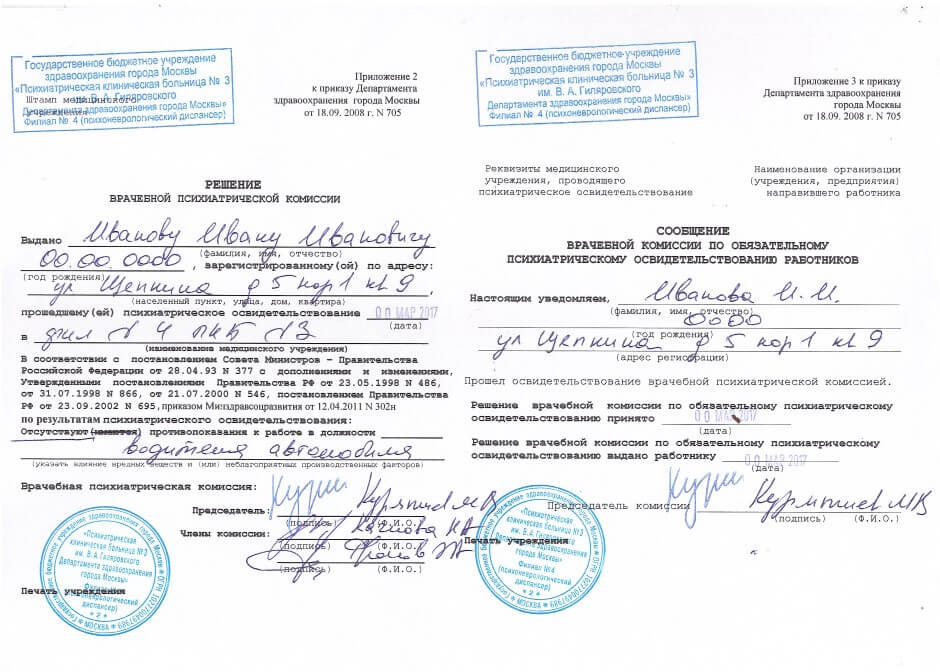 Государственное бюджетное учреждение
здравоохранения города Москвы
«Психиатрическая клиническая больница № 3
им. В. А. Гиляровского
Департамента здравоохранения города Москвы»
Филиал № 4 (психоневрологический диспансер)
Штамп медицинского
учреждения
Приложение 2
к приказу Департамента
здравоохранения города Москвы
от 18.09. 2008 г. N 705
РЕШЕНИЕ
ВРАЧЕБНОЙ ПСИХИАТРИЧЕСКОЙ КОМИССИИ
Выдано Иванову Ивану Ивановичу
(фамилия, имя, отчество)
00.00.0000, зарегистрированному(ой) по адресу:
(год рождения)
ул Щепкина д 5 кор 1 кв 9,
(населенный пункт, улица, дом, квартира)
прошедшему(ей) психиатрическое освидетельствование 00 МАР 2017
(дата)
в фил №4 ПКБ №3
(наименование медицинского учреждения)
В соответствии с постановлением Совета Министров – Правительства
Российской Федерации от 28.04.93 N 377 с дополнениями и изменениями,
Утвержденными постановлениями Правительства РФ от 23.05.1998 N 486,
от 31.07.1998 N 866, от 21.07.2000 N 546, постановлением Правительства
РФ от 23.09.2002 N 695, приказом Миздравсоцразвития от 12.04.2011 N 302н
по результатам психиатрического освидетельствования:
Отсутствуют (имеются) противопоказания к работе в должности
водителя автомобиля
(указать влияние вредных веществ и (или) неблагоприятных производственных факторов)
Врачебная психиатрическая комиссия:
Председатель:
(подпись) (Ф.И.О.)
Члены комиссии:
(подпись) (Ф.И.О.)
(подпись) (Ф.И.О.)
Печать учреждения
«Психиатрическая
клиническая больница №3
им. В.А. Гиляровского
Департамента здравоохранения
города Москвы»
диспансер)
* 2 *
* МОСКВА *
Государственное бюджетное учреждение
здравоохранения города Москвы
«Психиатрическая клиническая больница № 3
им. В. А. Гиляровского
Департамента здравоохранения города Москвы»
Филиал № 4 (психоневрологический диспансер)
Приложение 3 к приказу
Департамента здравоохранения
города Москвы
от 18.09. 2008 г. N 705
Реквизиты медицинского
учреждения, проводящего
психиатрическое освидетельствование
Наименование организации
(учреждения, предприятия)
направившего работника
СООБЩЕНИЕ
ВРАЧЕБНОЙ КОМИССИИ ПО ОБЯЗАТЕЛЬНОМУ
ПСИХИАТРИЧЕСКОМУ ОСВИДЕТЕЛЬСТВОВАНИЮ РАБОТНИКОВ
Настоящим уведомляем, Иванова И.И.
(фамилия, имя, отчество)
0000
(год рождения)
ул Щепкина д 5 кор 1 кв 9
(адрес регистрации)
Прошел освидетельствование врачебной психиатрической комиссией.
Решение врачебной комиссии по обязательному психиатрическому
освидетельствованию принято 00 МАР 2017
(дата)
Решение врачебной комиссии по обязательному психиатрическому
освидетельствованию выдано работнику 00 МАР 2017
(дата)
Председатель комиссии
(подпись) (Ф.И.О.)
Печать учреждения
«Психиатрическая
клиническая больница №3
им. В.А. Гиляровского
Департамента здравоохранения
города Москвы»
Филиал №4
(психоневрологический
диспансер)
* 2 *
* МОСКВА *